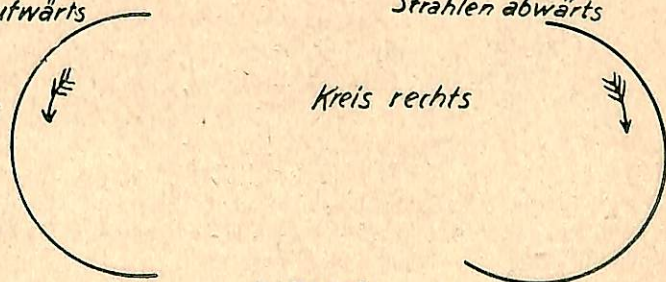 ufwärts
Strahlen abwärts
Kreis rechts